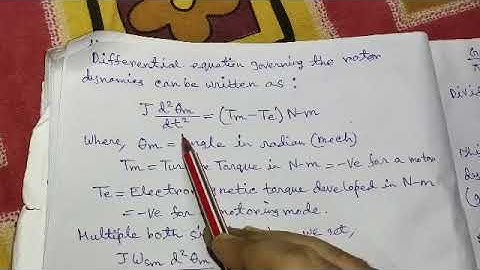 Differential equation governing the rotor
dynamics can be written as:
J d²θm/dt² = (Tm - Te) N-m
Where, θm = angle in radian (mech)
Tm = Torque in N-m = -Ve for a motor
Te = Electromagnetic torque developed in N-m
= -Ve for motoring mode.
Multiple both we get,
J Wsm d²θm
Divi